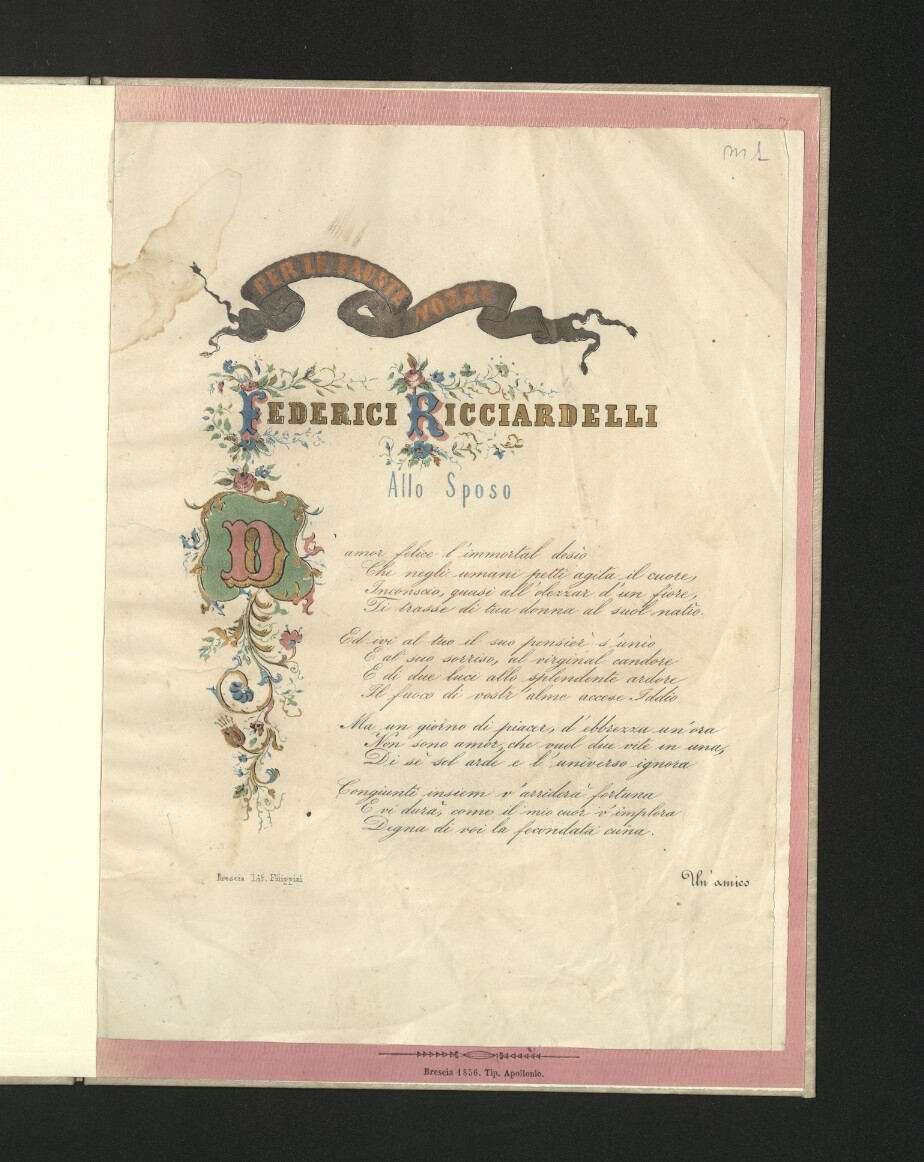 m 1
PER LE FAUSTE NOZZE
FEDERICI RICCIARDELLI
Allo Sposo
D'amor felice l'immortal desìo
Che negli umani petti agita il cuore,
Inconscio, quasi all'olezzar d'un fiore,
Ti trasse di tua donna al suol natìo.
Ed ivi al tuo il suo pensier s'unìo
E al suo sorriso, al virginal candore
E di due luci allo splendente ardore
Il fuoco di vostr'alme accese Iddio
Ma un giorno di piacer, d'ebbrezza un'ora
Non sono amor, che vuol due vite in una,
Di sè sol arde e l'universo ignora
Congiunti insiem v'arriderà fortuna
E vi darà, come il mio cuor v'implora
Degna di voi la fecondata cuna.
Un'amico
Brescia Lit. Filippini
Brescia 1856. Tip. Apollonio.